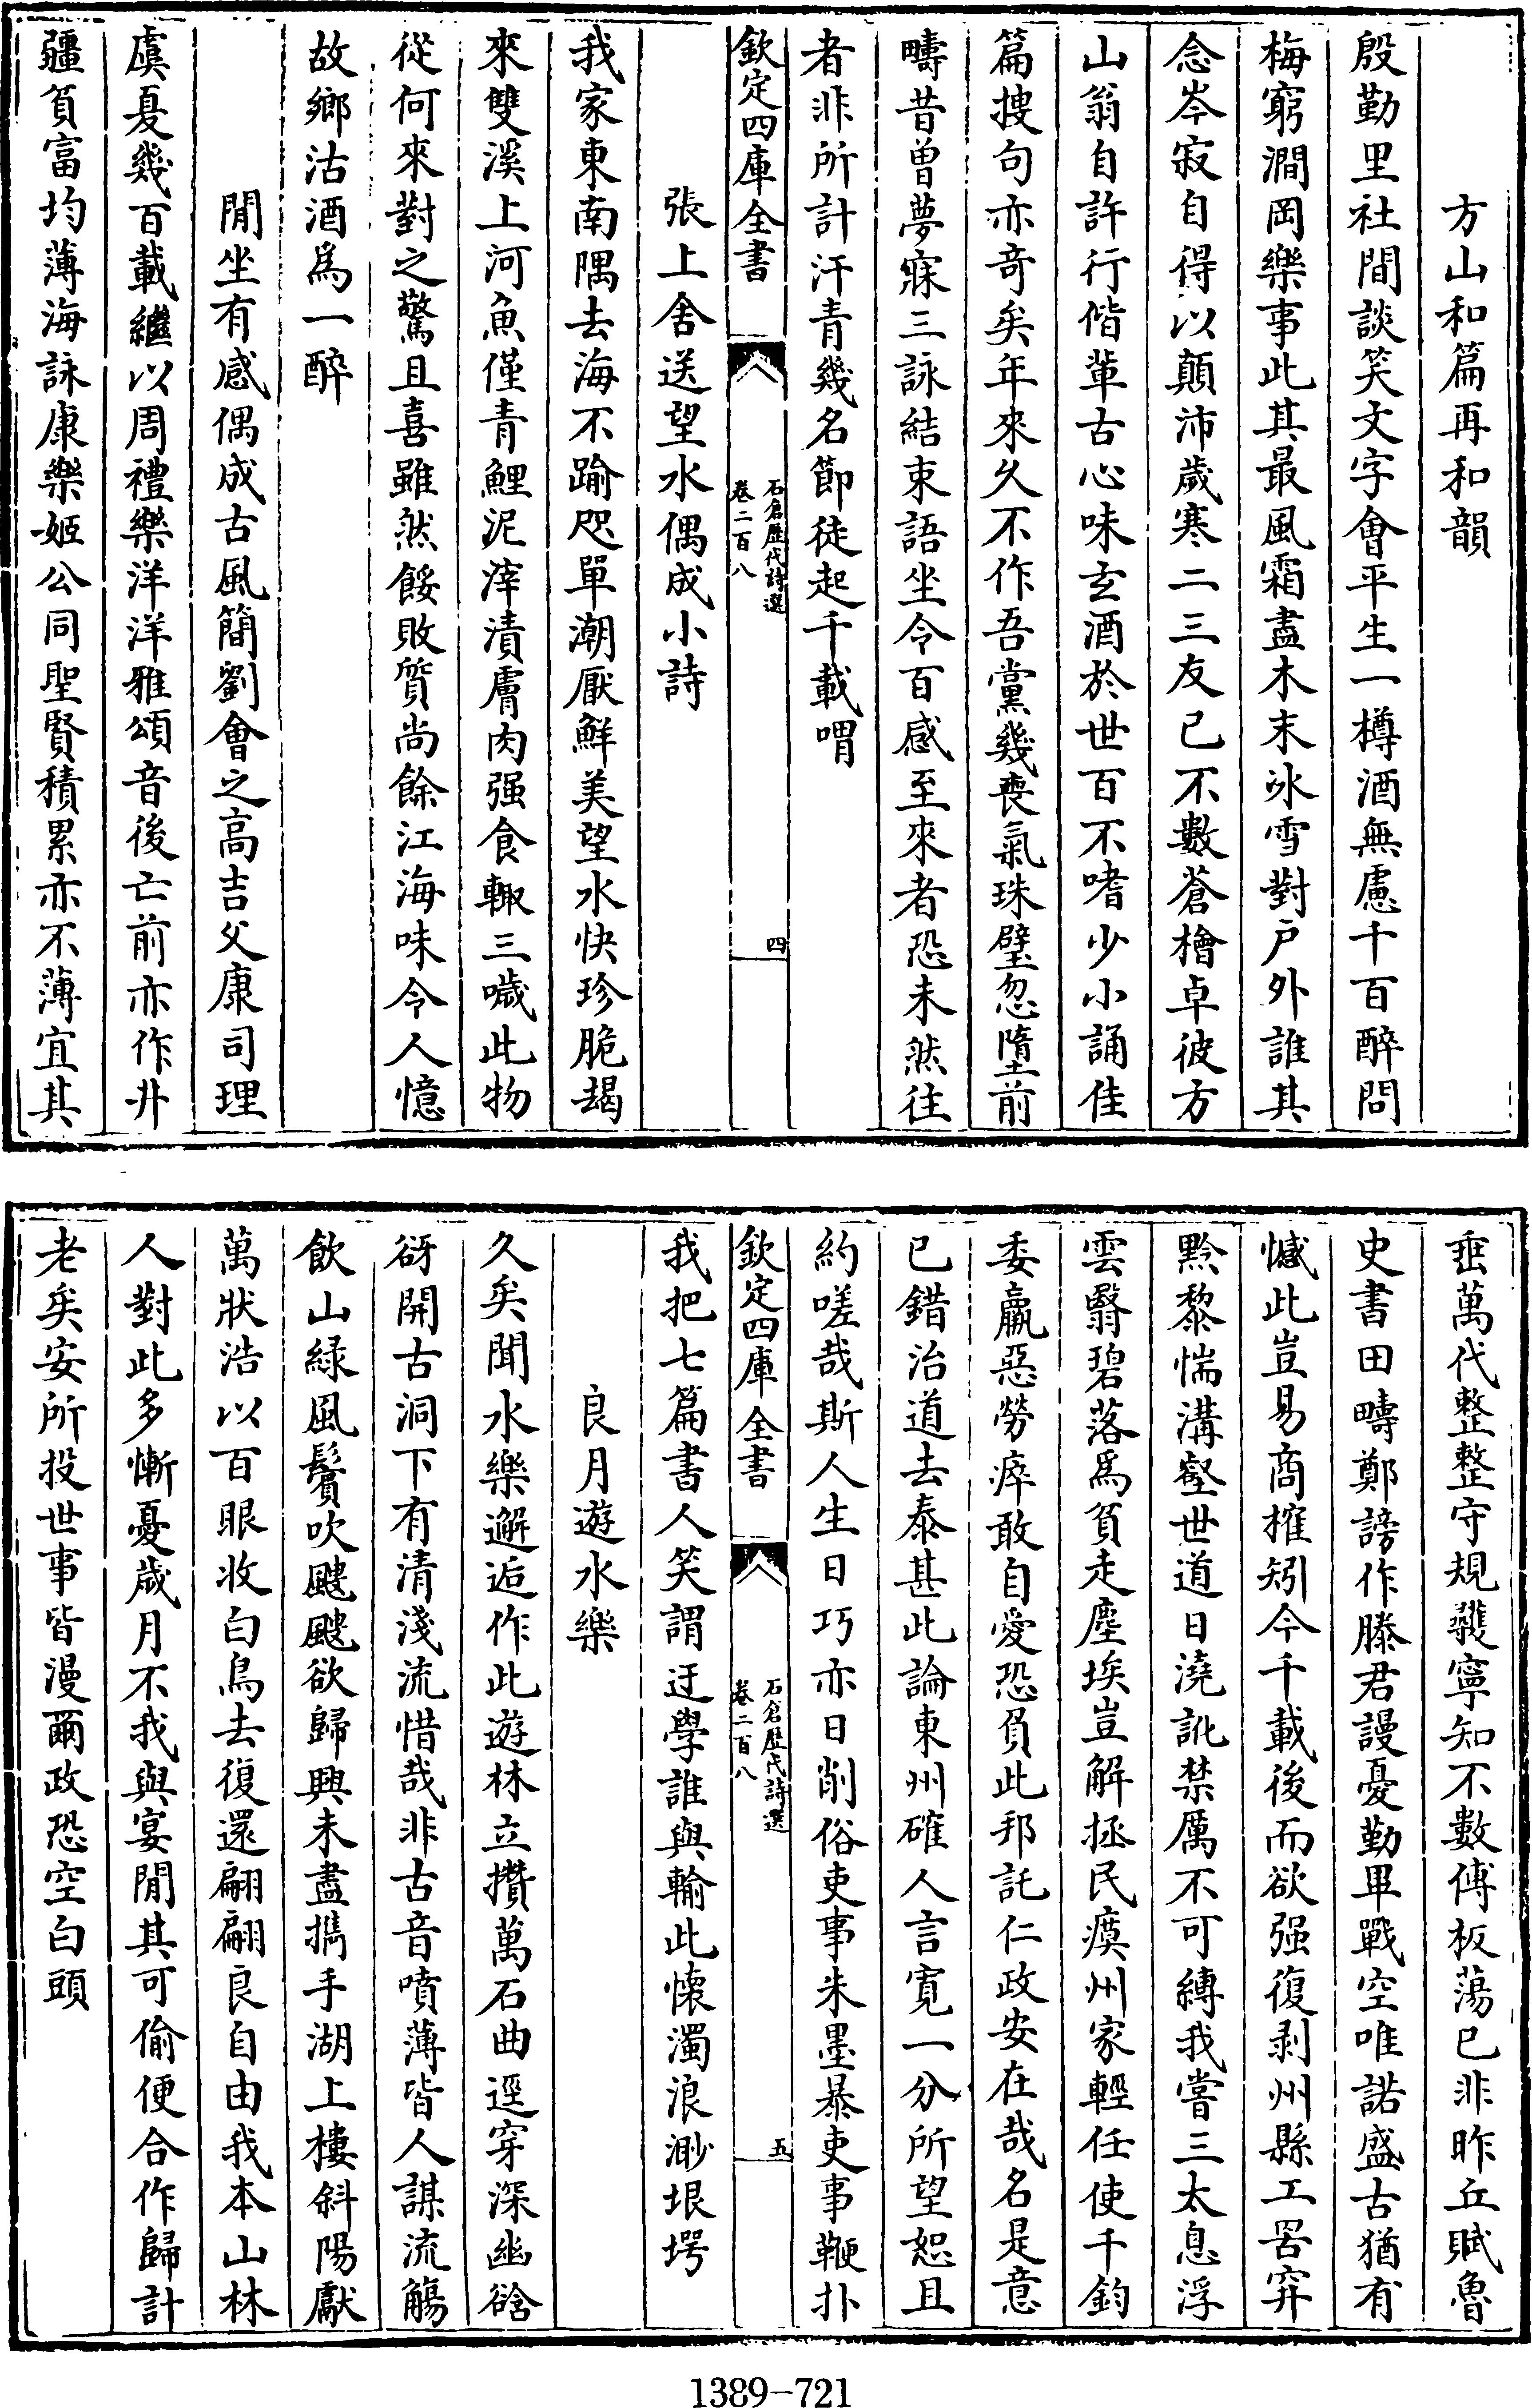 方山和篇再和韻
殷勤里社間談笑文字會平生一樽酒無慮千百醉問
梅窮澗岡樂事此其最風霜盡木末冰雪對戶外誰其
念岑寂自得以顛沛歲寒二三友已不數蒼檜卓彼方
山翁自許行偕輩古心味玄酒於世百不嗜少小誦佳
篇搜句亦奇矣年來久不作吾黨幾喪氣珠璧忽墮前
疇昔曽夢寐三詠結束語坐令百感至來者恐未然往
者非所計汗青幾名節徒起千載喟
欽定四庫全書
石倉歷代詩選
卷二百八
四
張上舍送望水偶成小詩
我家東南隅去海不踰咫單潮厭鮮美望水快珍脆朅
來雙溪上河魚僅青鯉泥滓漬膚肉强食輙三噦此物
從何來對之驚且喜雖然餒敗質尚餘江海味令人憶
故鄉沽酒爲一醉
閒坐有感偶成古風簡劉會之高吉父康司理
虞夏幾百載繼以周禮樂洋洋雅頌音後亡前亦作井
疆貧富均薄海詠康樂姬公同聖賢積累亦不薄宜其
垂萬代整整守規彠寧知不數傳板蕩已非昨丘賦魯
史書田疇鄭謗作滕君謾憂勤畢戰空唯諾盛古猶有
憾此豈易商搉矧今千載後而欲强復剥州縣工罟穽
黔黎惴溝壑世道日澆訛禁厲不可縛我嘗三太息浮
雲翳碧落爲貧走塵埃豈解拯民瘼州家輕任使千鈞
委羸惡勞瘁敢自愛恐負此邦託仁政安在哉名是意
已錯治道去泰甚此論東州確人言寛一分所望恕且
約嗟哉斯人生日巧亦日削俗吏事朱墨暴吏事鞭扑
欽定四庫全書
石倉歷代詩選
卷二百八
五
我把七篇書人笑謂迂學誰與輸此懷濁浪渺垠堮
良月遊水樂
久矣聞水樂邂逅作此遊林立攢萬石曲逕穿深幽谽
谺開古洞下有清淺流惜哉非古音噴薄皆人謀流觴
飲山緑風鬢吹颼颼欲歸興未盡攜手湖上樓斜陽獻
萬狀浩以百眼收白鳥去復還翩翩良自由我本山林
人對此多慚憂歲月不我與宴閒其可偷便合作歸計
老矣安所投世事皆漫爾政恐空白頭
1389-721